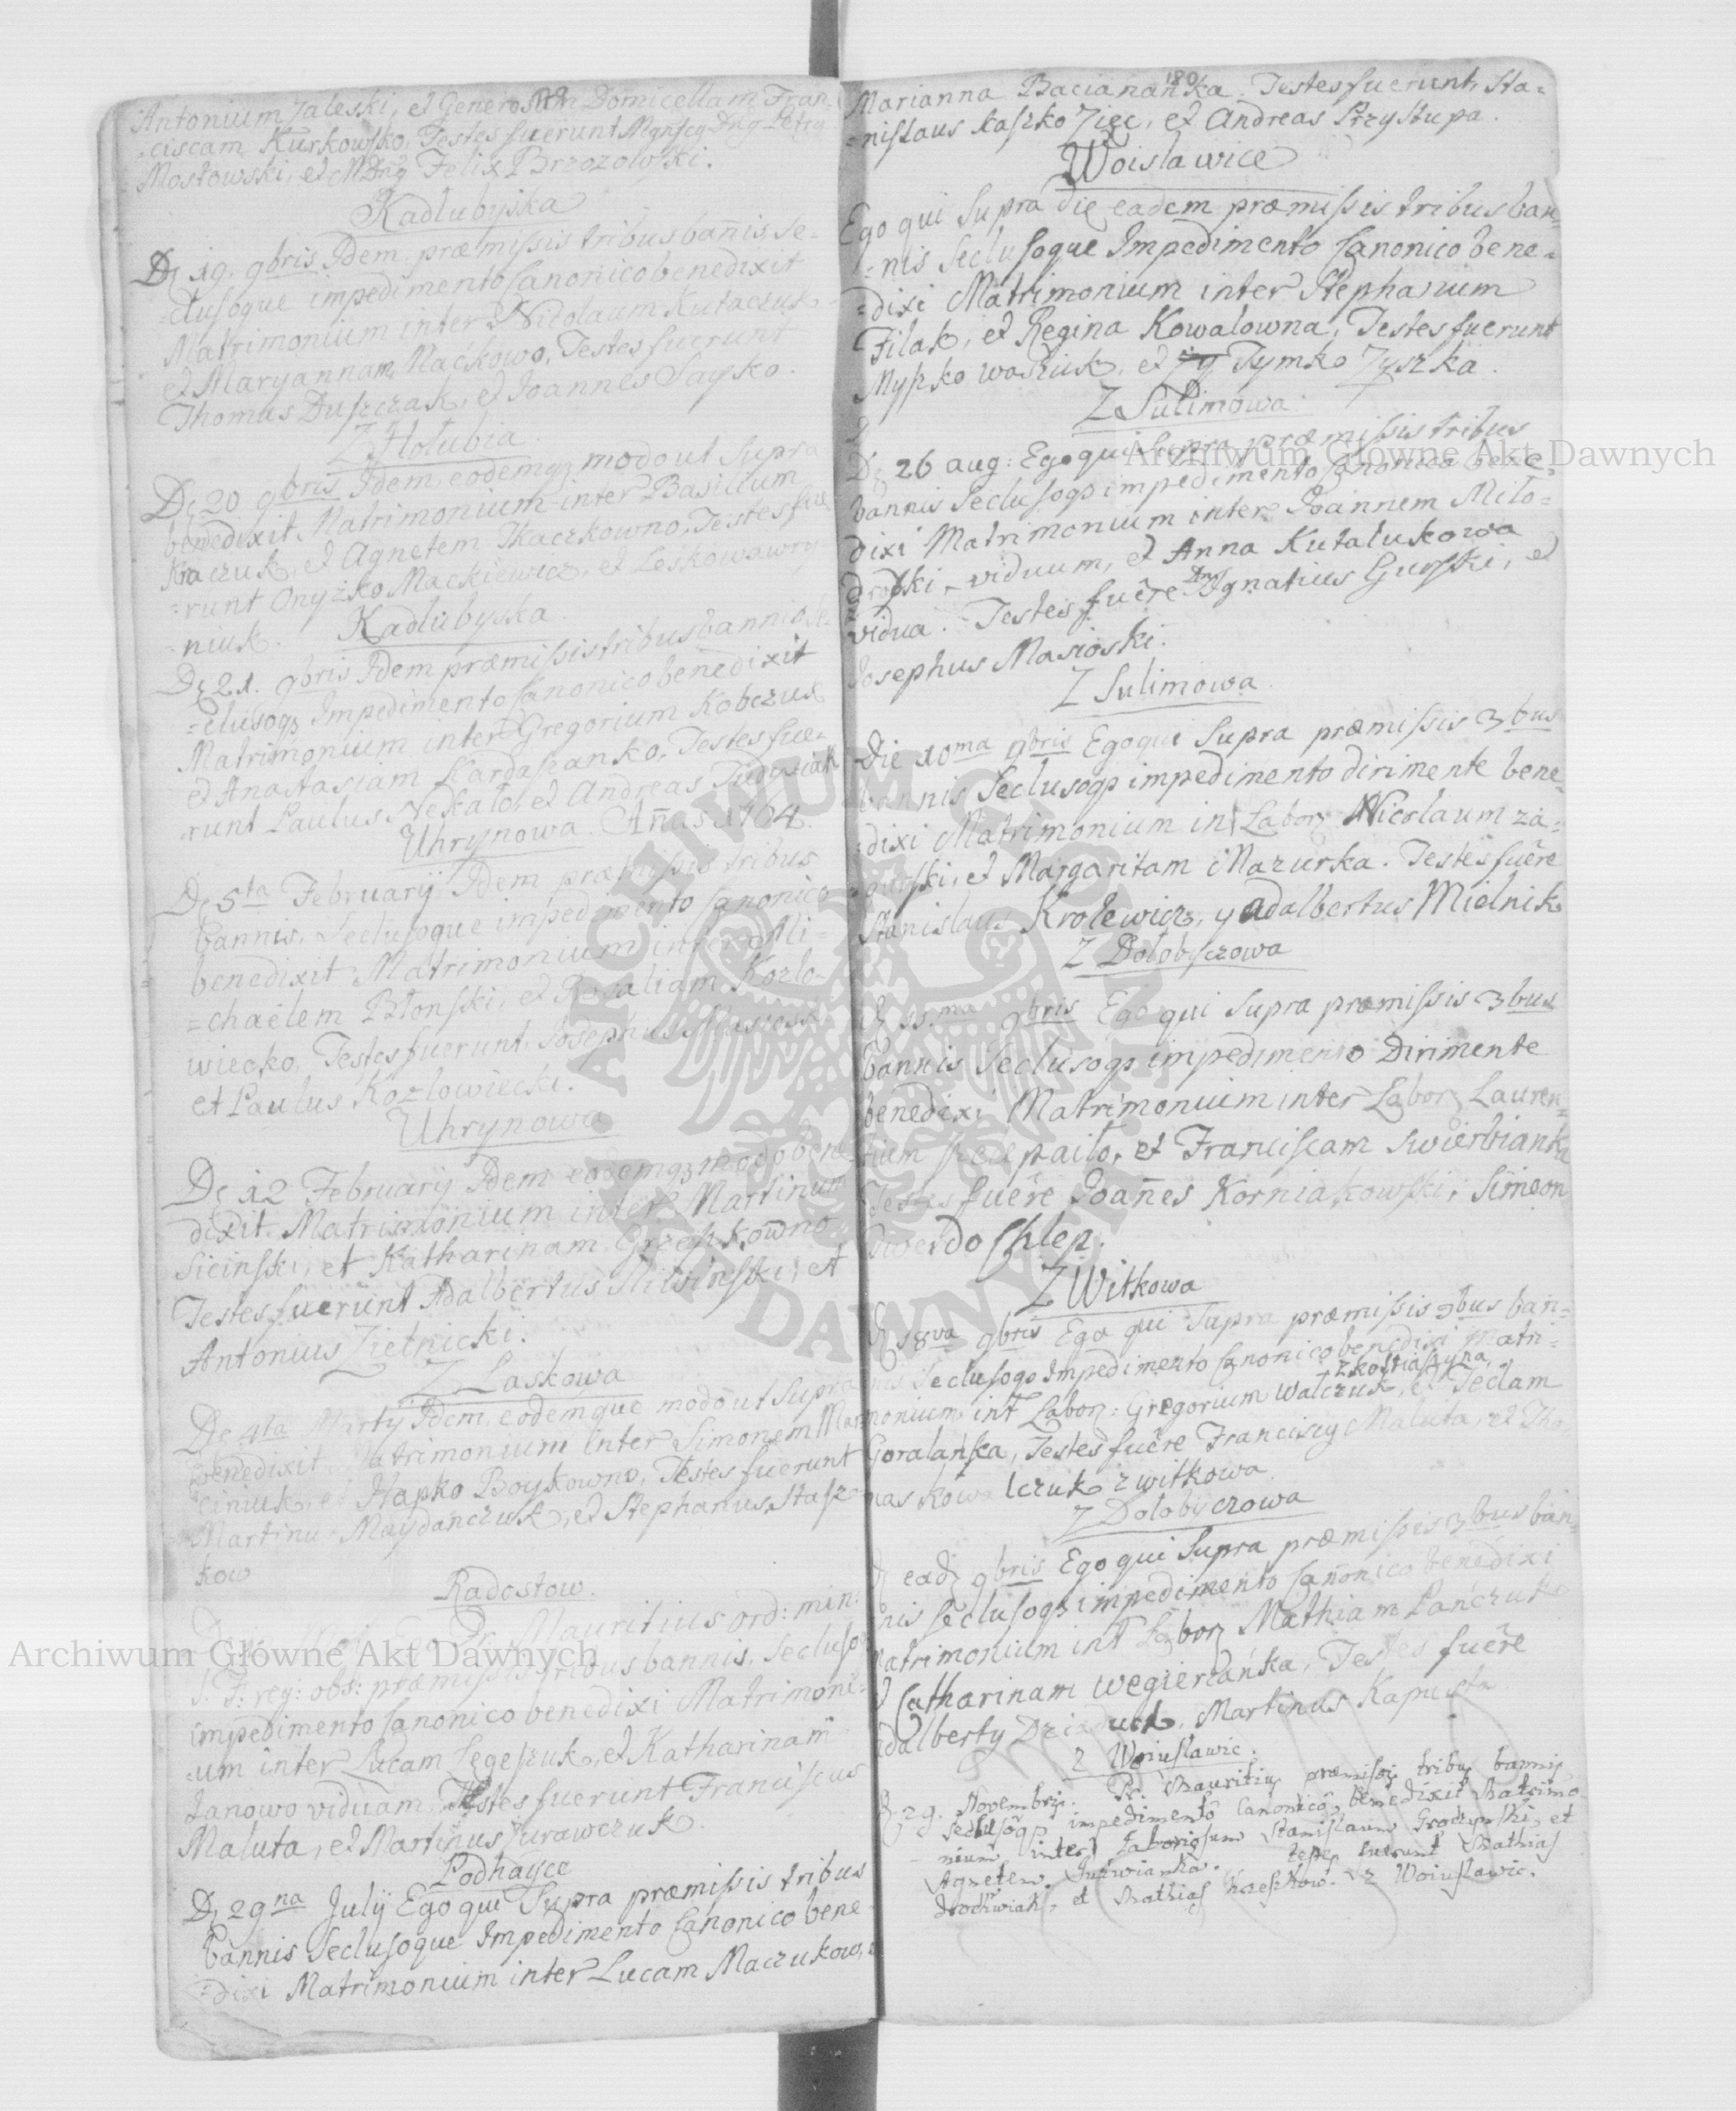 Antonium Zaleski, et Generosam Domicellam Fran-
-ciscam Kurkowsko, Testes fuerunt Mgnfcg Dng Petrg
Mostowski, et MDng Felix Brzozowski.
Kadlubyska
Dq 19. 9bris Idem præmissis tribus bañis, Se-
-clusoque impedimento Canonico benedixit
Matrimonium inter Nicolaum Kutaczuk
et Maryannam Maćkowo, Testes fuerunt
Thomas Duszczak, et Joannes Sayko.
Z Hołubia.
Dq 20 9bris Idem eodemqz modo ut Supra
benedixit Matrimonium inter Basilium
et Agnetem Tkaczkowno, Testes fue
-runt Onyszko Mackiewicz, et Leskowawry
-niuk.
Kadlubyska.
Dq 21. 9bris Idem præmissis tribus bannis Se-
-clusoqz Impedimento Canonico benedixit
Matrimonium inter Gregorium Kobczuk
et Anastasiam Kardaszanko, Testes fue-
-runt Paulus Nekało, et Andreas
Uhrynowa. Añus 1764.
De 5ta Februarij Idem præmissis tribus
bannis, Seclusoque impedimento Canonico
benedixit Matrimonium inter Mi-
=chaëlem Błonski, et Rosaliam Kozlo-
wiecko, Testes fuerunt, Josephus
et Paulus Kozlowiecki.
Uhrynowa
Dq 12 Februarij Idem eodemqz modo bene
dixit Matrimonium inter Martinum
Sicinski, et Katharinam Grzeszkowno
Testes fuerunt Adalbertus Milsinski, et
Antonius Zielnicki.
Z Laskowa
De 4ta Martij Idem, eodemque modo ut Supra
benedixit Matrimonium inter Simonem Mar
ciniuk, et Hapko Boykowno, Testes fuerunt
Martinus Maydanczuk, et Stephanus Stasz-
kow
Radostow.
Mauritius ord: min:
S. F: reg: obs: præmissis tribus bannis, Secluso
impedimento Canonico benedixi Matrimoni-
-um inter Lucam Legeszuk, et Katharinam
Janowo viduam, Testes fuerunt Franciscus
Maluta, et Martinus Zurawczuk.
Podhayce
Dq 29na Julij Ego qui Supra præmissis tribus
bannis Seclusoque Impedimento Canonico bene-
-dixi Matrimonium inter Lucam Maczukow, et
180
Marianna Bacianańka. Testes fuerunt, Sta-
-nislaus Kaszko Ziec, et Andreas Przystupa.
Woislawice
Ego qui Supra die eadem præmissis tribus ban-
-nis Seclusoque Impedimento Canonico bene-
-dixi Matrimonium inter Stephanum
Filak, et Regina Kowalowna, Testes fuerunt
Myszko Wasiuk, et Tymko Zyszka.
Z Sulimowa
Dq 26 aug: Ego qui Supra præmissis tribus
bannis Seclusoqz impedimento Canonico bene-
dixi Matrimonium inter Joannem Miło-
viduum, et Anna Kutalukowa
vidua. Testes fuêre Dng Ignatius Gurski, et
Josephus Masioski.
Z Sulimowa
Die 10ma 9bris Ego qui Supra præmissis 3bus
bannis Seclusoqz impedimento dirimente bene
-dixi Matrimonium int Laborq Nicolaum Za-
-gurski, et Margaritam Mazurka. Testes fuêre
Stanislaus Krolewicz, y Adalbertus Mielnik
Z Dołobyczowa
Dq 11ma 9bris Ego qui Supra præmissis 3bus
bannis Seclusoqz impedimento Dirimente
benedixi Matrimonium inter Laborq Lauren-
tium Szczepaiło, et Franciscam Swierbianka
Testes fuêre Joañes Korniakowski, Simeon
Twerdochlep.
Z Witkowa
Dq 18va 9bris Ego qui Supra præmissis 3bus ban-
nis Seclusoqz Impedimento Canonico benedixi Matri-
z Kostiaszyna
monium int Laborq: Gregorium Walczuk, et Teclam
Goralanka, Testes fuêre Franciszy Maluta, et Tho
mas Kowalczuk z Witkowa
Z Dołobyczowa
Dq eadq 9bris Ego qui Supra præmissis 3bus ban-
nis Seclusoqz impedimento Canonico benedixi
Matrimonium int Laborq Mathiam Łańczuk
et Catharinam Wegierzańka, Testes fuêre
Adalberty Dziaduck, Martinus Kapusta
z Woiuslawic.
D. 29. Novembris. Pr. Mauritius præmissis tribus bannis
seclusoqz impedimento Canonico, benedixit Matrimo-
-nium inter Laboriosum Stanislaum Grodzinski, et
Agnetem. testes fuerunt Mathias
et Mathias z Woiuslawic.
Archiwum Główne Akt Dawnych
Archiwum Główne Akt Dawnych
ARCHIWUM GŁÓWNE AKT DAWNYCH